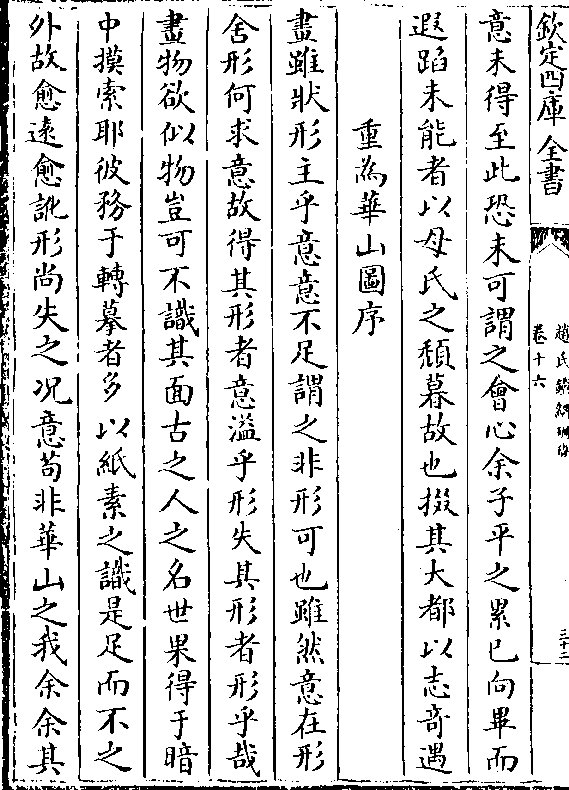 欽定四庫全書
趙氏鐵網珊瑚
卷十六
三十二
意未得至此恐未可謂之會心余子平之累已向畢而
遐蹈未能者以母氏之頹暮故也掇其大都以志奇遇
重為華山圖序
畫雖狀形主乎意意不足謂之非形可也雖然意在形
舍形何求意故得其形者意溢乎形失其形者形乎哉
畫物欲似物豈可不識其面古之人之名世果得于暗
中摸索耶彼務于轉摹者多以紙素之識是足而不之
外故愈遠愈訛形尚失之况意苟非華山之我余余其